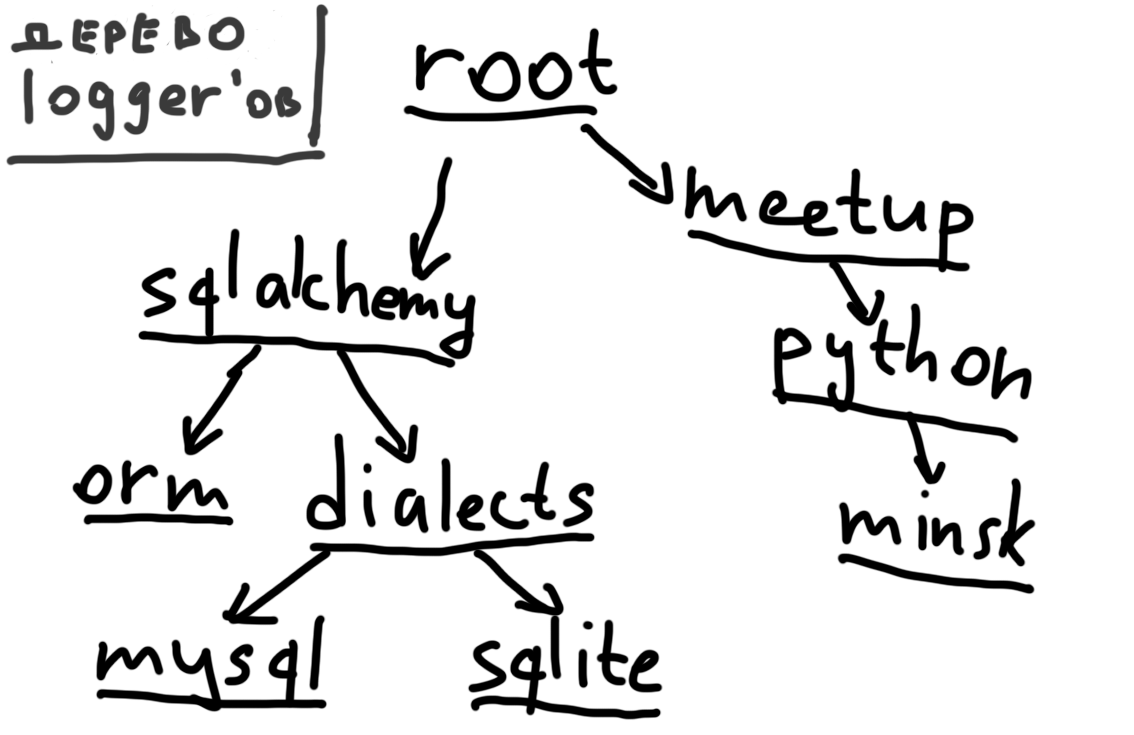 ДЕРЕВО
logger'ов
root
meetup
sqlalchemy
python
orm
dialects
minsk
mysql
sqlite